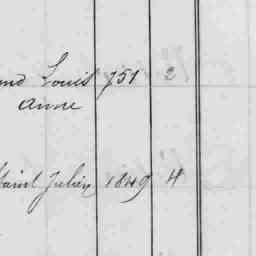 Louis 751 2
Anne
Saint Julien 1849 4